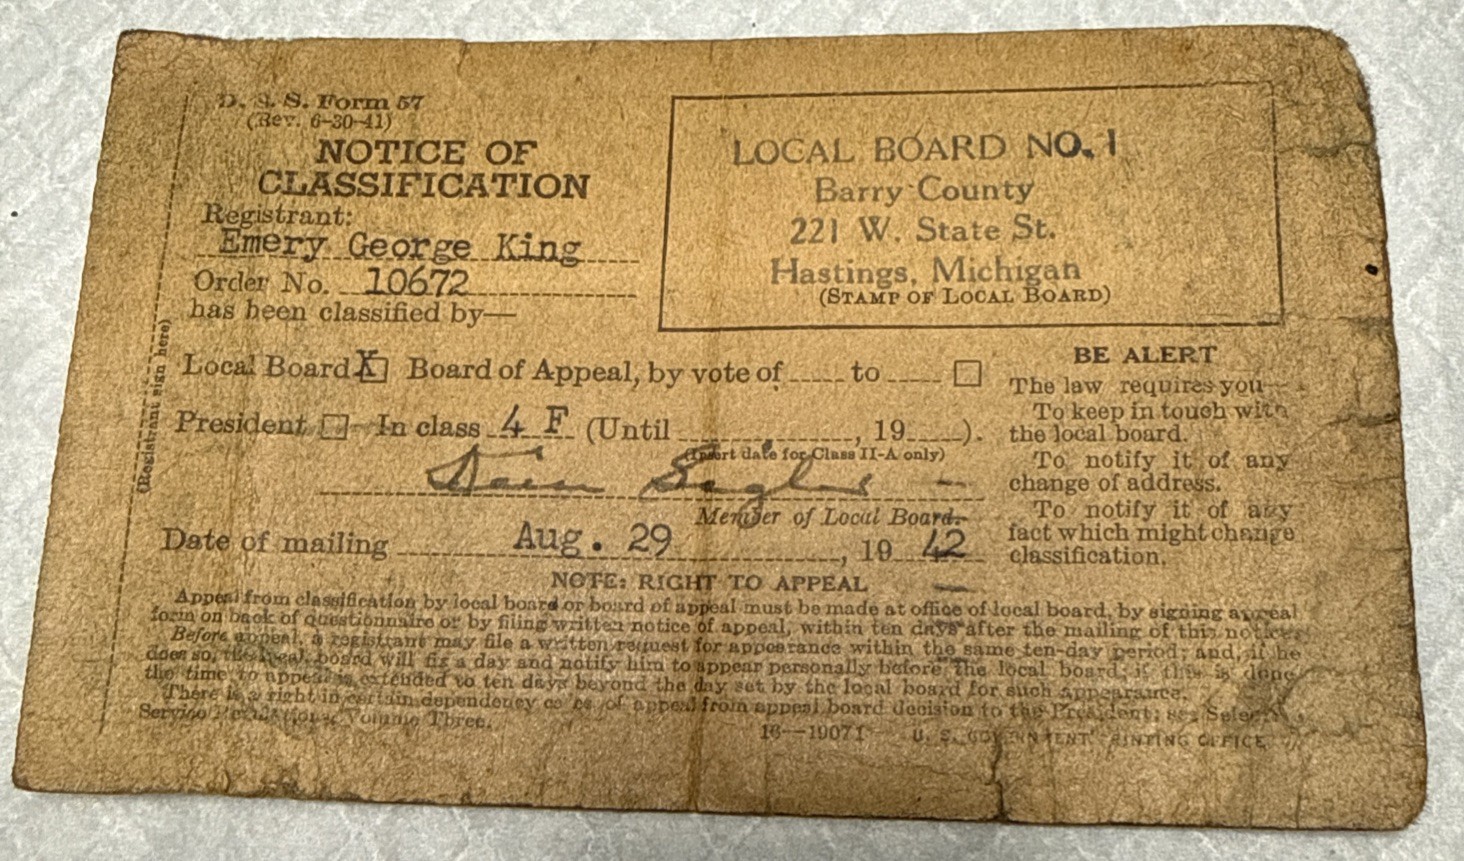 D. S. S. Form 57
(Rev. 6-30-41)
NOTICE OF
CLASSIFICATION
Registrant:
Emery George King
Order No. 10672
has been classified by—
LOCAL BOARD NO. 1
Barry County
221 W. State St.
Hastings, Michigan
(STAMP OF LOCAL BOARD)
(Registrant sign here)
Local Board X Board of Appeal, by vote of ..... to ..... □
President □ In class 4 F (Until ..............., 19.....).
(Insert date for Class II-A only)
Member of Local Board.
Date of mailing Aug. 29, 19 42
BE ALERT
The law requires you—
To keep in touch with
the local board.
To notify it of any
change of address.
To notify it of any
fact which might change
classification.
NOTE: RIGHT TO APPEAL
Appeal from classification by local board or board of appeal must be made at office of local board, by signing appeal
form on back of questionnaire or by filing written notice of appeal, within ten days after the mailing of this notice.
Before appeal, a registrant may file a written request for appearance within the same ten-day period; and, if he
does so, the local board will fix a day and notify him to appear personally before the local board; if this is done
the time to appeal is extended to ten days beyond the day set by the local board for such appearance.
There is a right in certain dependency cases of appeal from appeal board decision to the President; see Selective
Service Regulations, Volume Three.
16—19071 U. S. GOVERNMENT PRINTING OFFICE